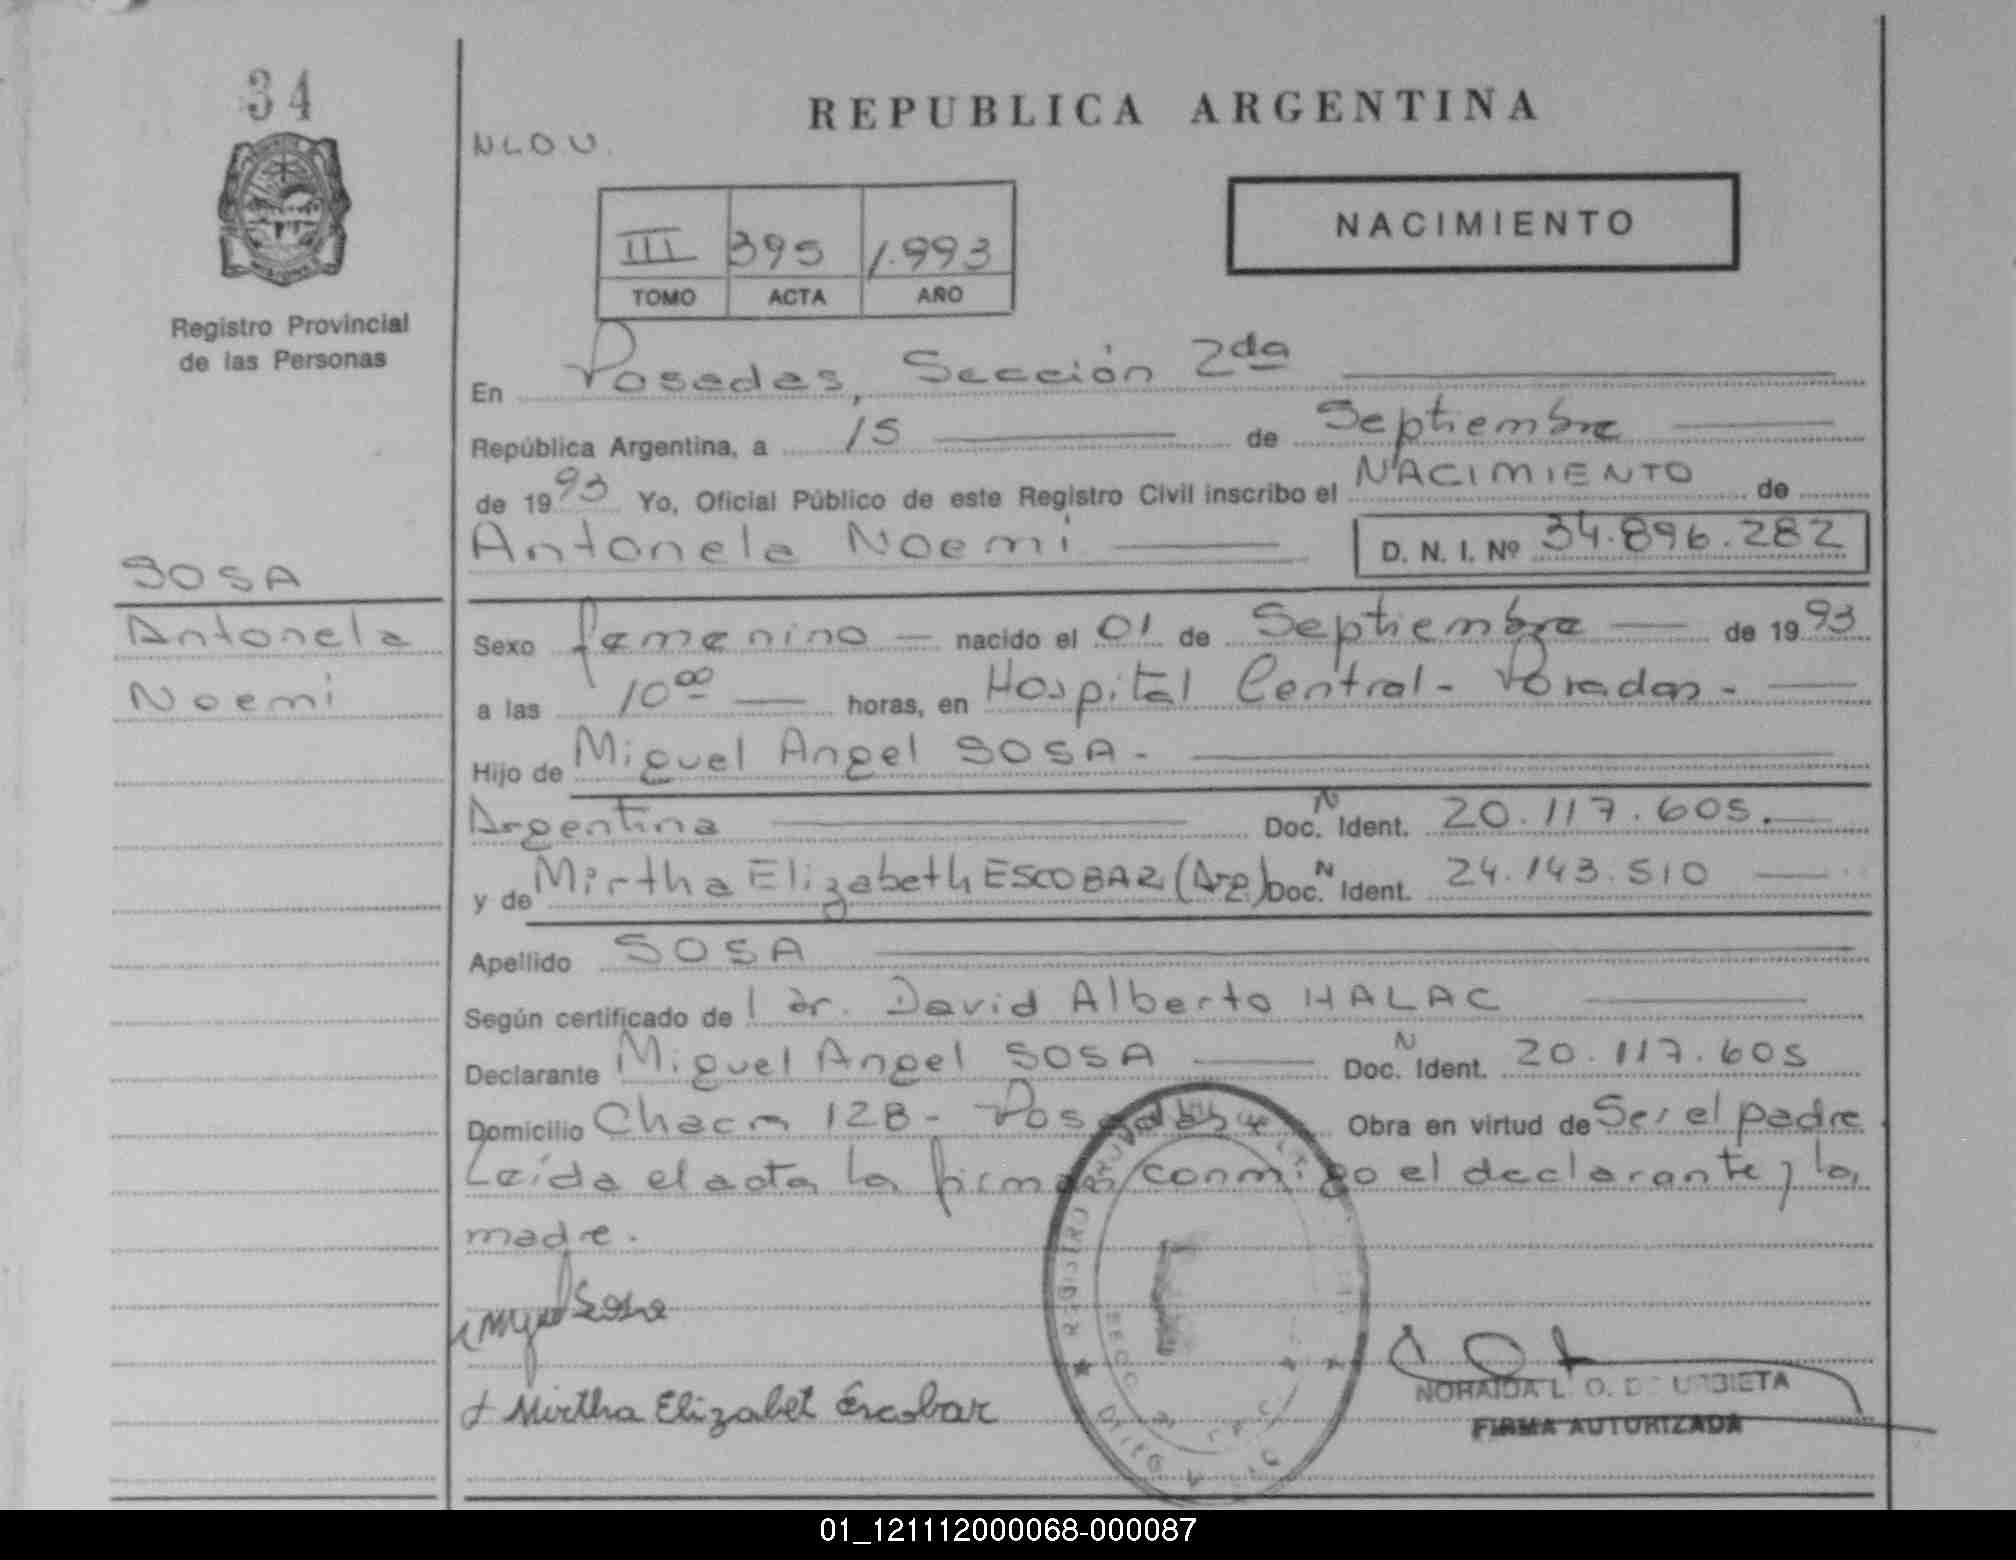 34
REPUBLICA ARGENTINA
N L O U.
NACIMIENTO
III 395 1.993
TOMO ACTA AÑO
Registro Provincial
de las Personas
En Posadas, Sección 2da
República Argentina, a 15 de Septiembre
de 1993 Yo, Oficial Público de este Registro Civil inscribo el NACIMIENTO de
Antonela Noemi D. N. I. Nº 34.896.282
SOSA
Antonela
Noemi
Sexo femenino nacido el 01 de Septiembre de 1993
a las 10 00 horas, en Hospital Central - Posadas -
Hijo de Miguel Angel SOSA -
Argentina Doc. N Ident. 20.117.605.
y de Mirtha Elizabeth ESCOBAR (Arg.) Doc. N Ident. 24.143.510
Apellido SOSA
Según certificado de l dr. David Alberto HALAC
Declarante Miguel Angel SOSA Doc. N Ident. 20.117.605
Domicilio Chacra 128 - Posadas Obra en virtud de Ser el padre.
Leída el acta la firman conmigo el declarante y la
madre.
Miguel Sosa
Mirtha Elizabet Escobar
REGISTRO
NORAIDA L. O. DE URBIETA
FIRMA AUTORIZADA
01_121112000068-000087